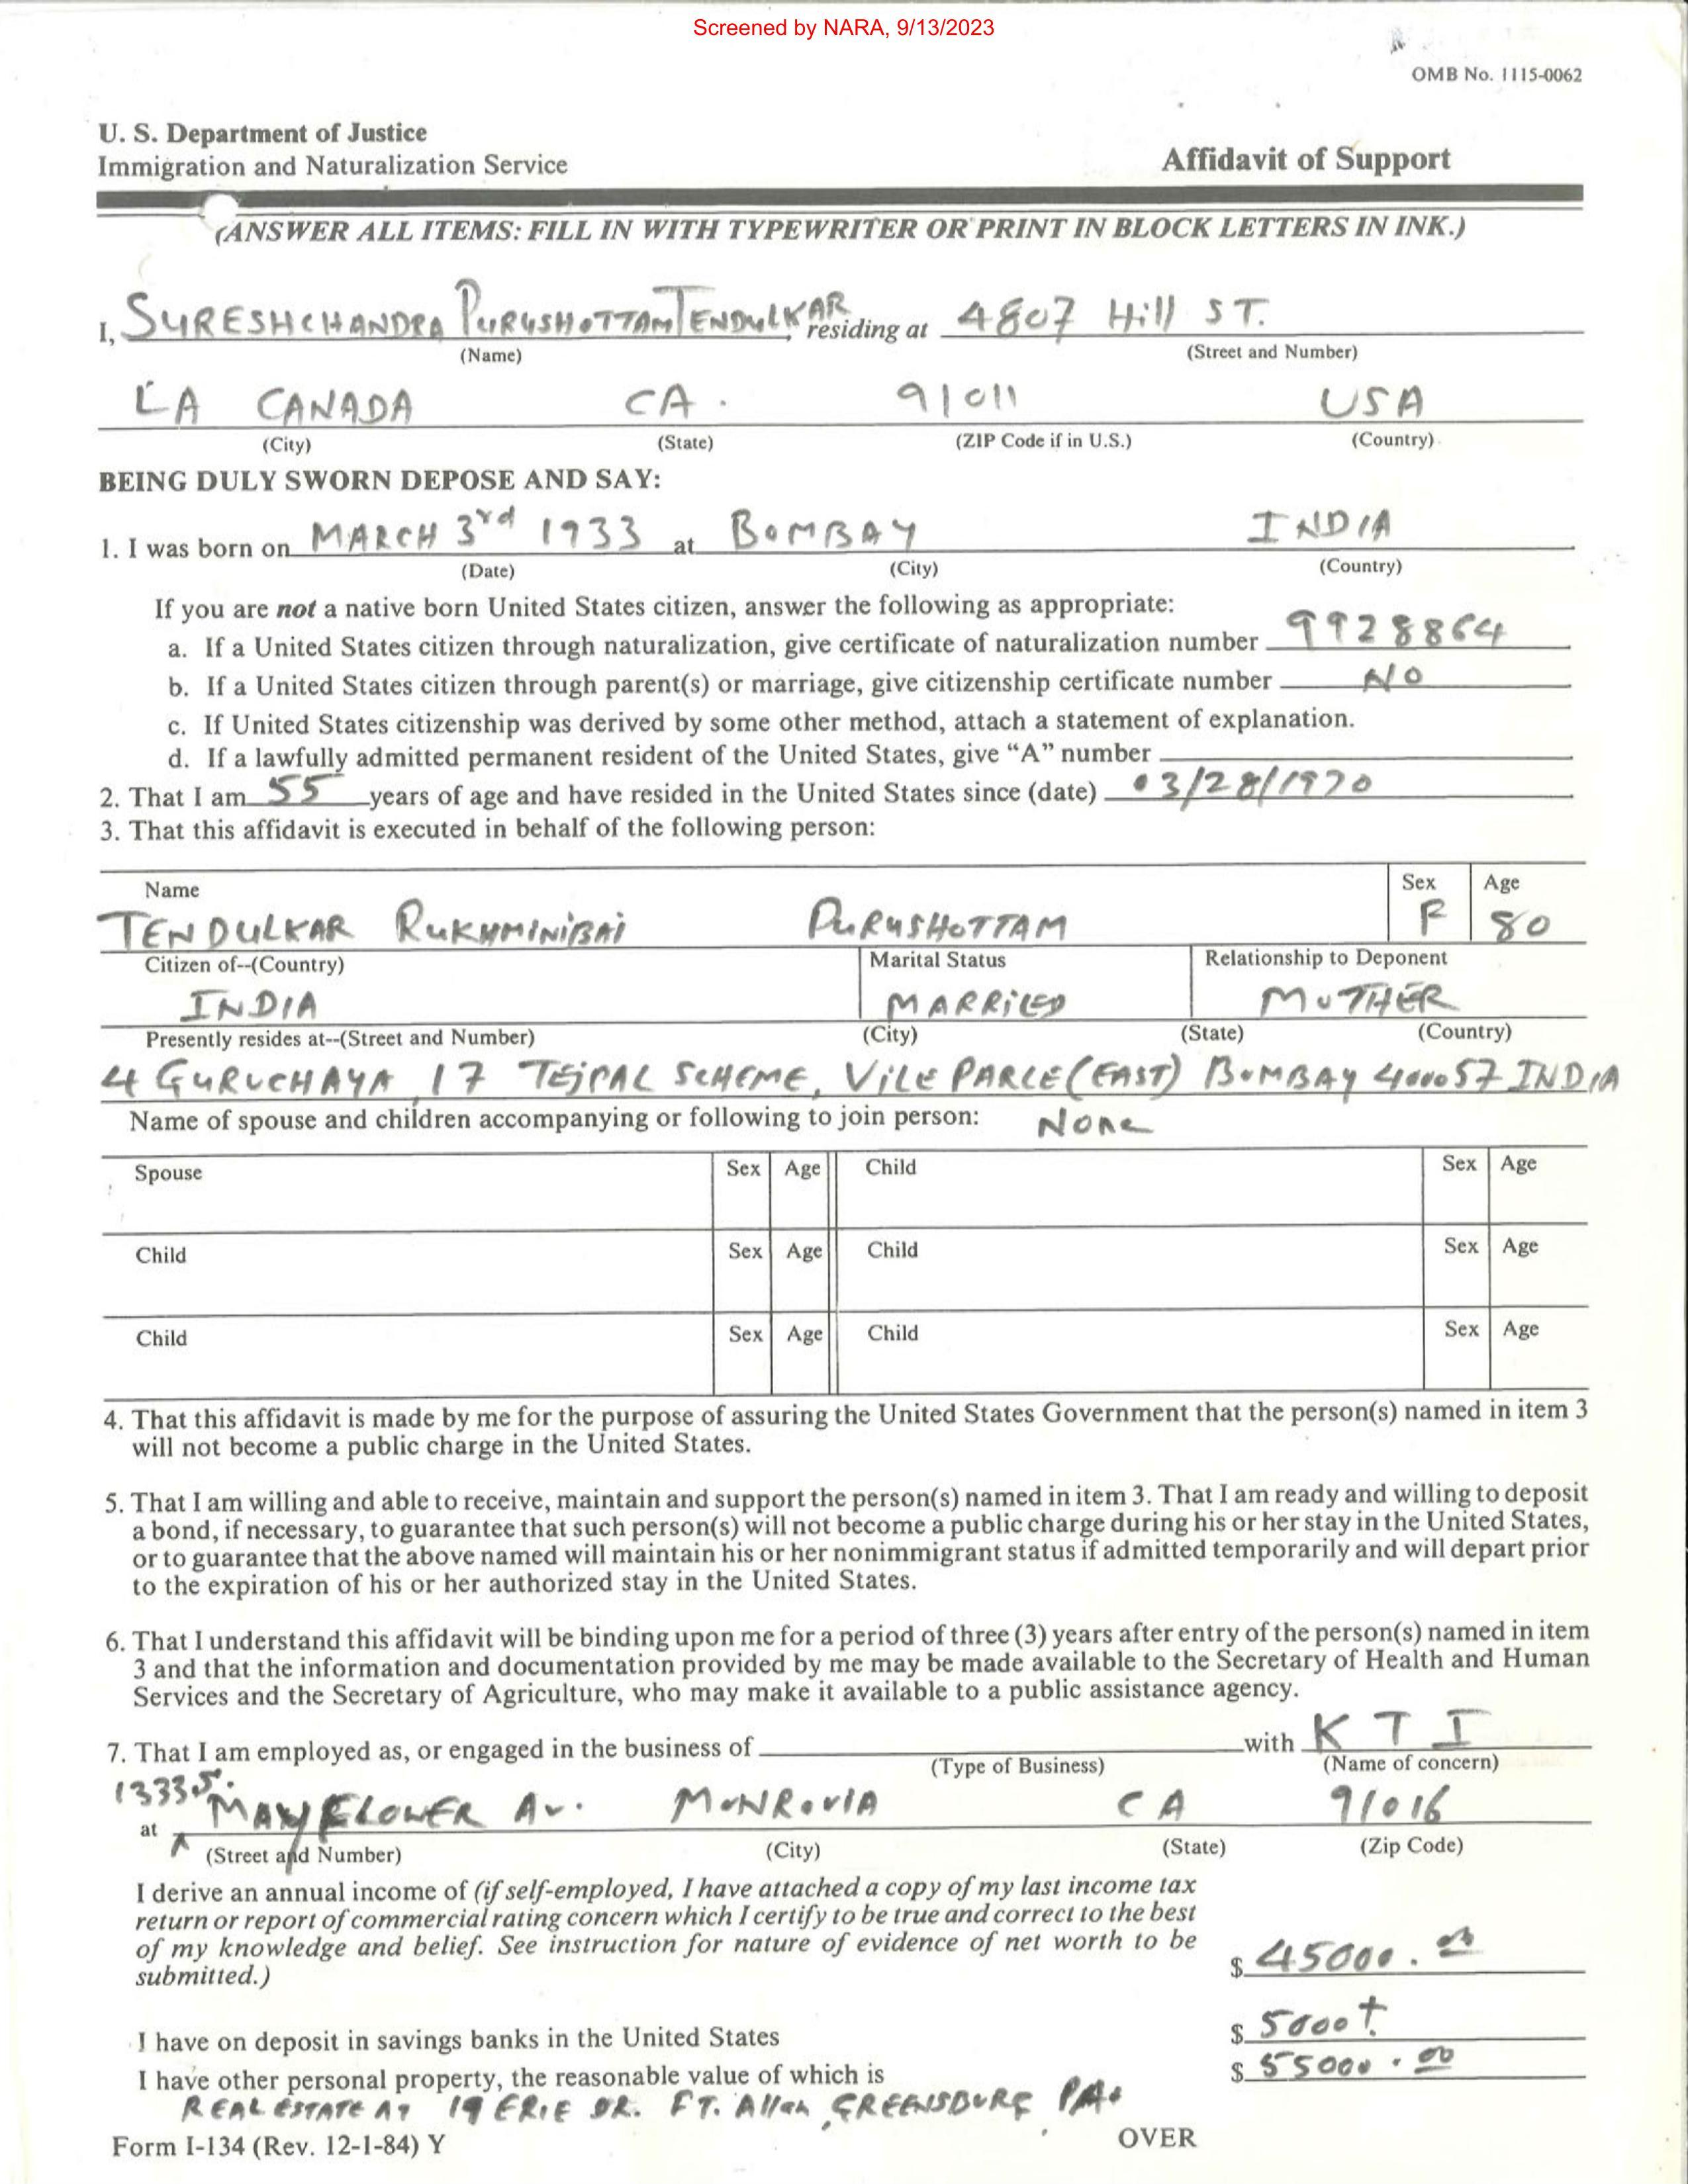 Screened by NARA, 9/13/2023
OMB No. 1115-0062
U. S. Department of Justice
Immigration and Naturalization Service
Affidavit of Support
(ANSWER ALL ITEMS: FILL IN WITH TYPEWRITER OR PRINT IN BLOCK LETTERS IN INK.)
I, SURESHCHANDRA PURUSHOTTAM TENDULKAR, residing at 4807 Hill ST.
(Name) (Street and Number)
LA CANADA CA. 91011 USA
(City) (State) (ZIP Code if in U.S.) (Country)
BEING DULY SWORN DEPOSE AND SAY:
1. I was born on MARCH 3rd 1933 at BOMBAY INDIA
(Date) (City) (Country)
If you are not a native born United States citizen, answer the following as appropriate:
a. If a United States citizen through naturalization, give certificate of naturalization number 9928864
b. If a United States citizen through parent(s) or marriage, give citizenship certificate number NO
c. If United States citizenship was derived by some other method, attach a statement of explanation.
d. If a lawfully admitted permanent resident of the United States, give “A” number
2. That I am 55 years of age and have resided in the United States since (date) 03/28/1970
3. That this affidavit is executed in behalf of the following person:
Name Sex Age
TENDULKAR RUKHMINIBAI PURUSHOTTAM F 80
Citizen of--(Country) Marital Status Relationship to Deponent
INDIA MARRIED MOTHER
Presently resides at--(Street and Number) (City) (State) (Country)
4 GURUCHAYA, 17 TEJPAL SCHEME, VILE PARLE (EAST) BOMBAY 400057 INDIA
Name of spouse and children accompanying or following to join person: None
Spouse Sex Age Child Sex Age
Child Sex Age Child Sex Age
Child Sex Age Child Sex Age
4. That this affidavit is made by me for the purpose of assuring the United States Government that the person(s) named in item 3
will not become a public charge in the United States.
5. That I am willing and able to receive, maintain and support the person(s) named in item 3. That I am ready and willing to deposit
a bond, if necessary, to guarantee that such person(s) will not become a public charge during his or her stay in the United States,
or to guarantee that the above named will maintain his or her nonimmigrant status if admitted temporarily and will depart prior
to the expiration of his or her authorized stay in the United States.
6. That I understand this affidavit will be binding upon me for a period of three (3) years after entry of the person(s) named in item
3 and that the information and documentation provided by me may be made available to the Secretary of Health and Human
Services and the Secretary of Agriculture, who may make it available to a public assistance agency.
7. That I am employed as, or engaged in the business of with K T I
(Type of Business) (Name of concern)
1333 S.
at MAYFLOWER Av. MONROVIA CA 91016
(Street and Number) (City) (State) (Zip Code)
I derive an annual income of (if self-employed, I have attached a copy of my last income tax
return or report of commercial rating concern which I certify to be true and correct to the best
of my knowledge and belief. See instruction for nature of evidence of net worth to be
submitted.) $ 45000.00
I have on deposit in savings banks in the United States $ 5000+.
I have other personal property, the reasonable value of which is $ 55000.00
REAL ESTATE AT 19 ERIE DR. FT. Allen, GREENSBURG PA.
Form I-134 (Rev. 12-1-84) Y OVER